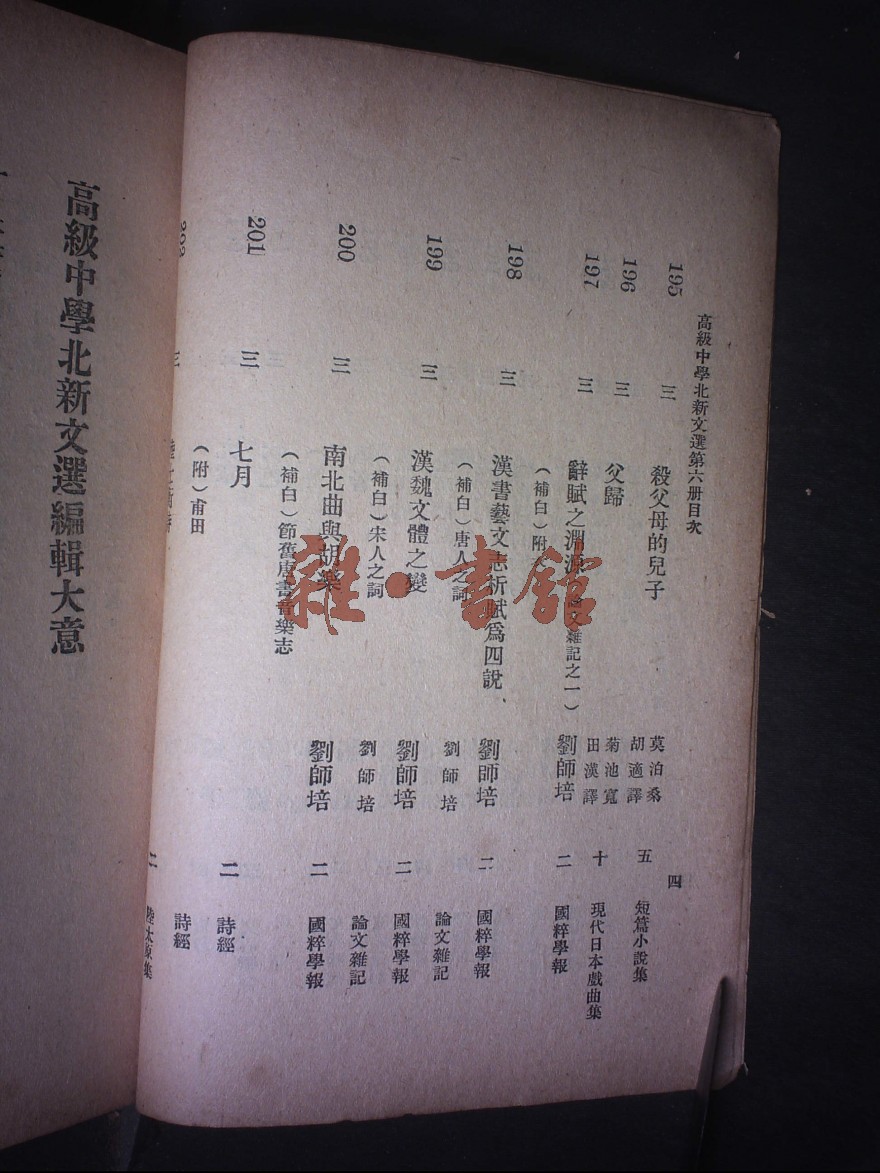 高級中學北新文選第六册目次
四
195 三 殺父母的兒子 莫泊桑 胡適譯 五 短篇小說集
196 三 父歸 菊池寬 田漢譯 十 現代日本戲曲集
197 三 辭賦之淵源 論文雜記之一) 劉師培 二 國粹學報
(補白)附
198 三 漢書藝文志析賦爲四說 劉師培 二 國粹學報
(補白)唐人之詞 劉師培 論文雜記
199 三 漢魏文體之變 劉師培 二 國粹學報
(補白)宋人之詞 劉師培 論文雜記
200 三 南北曲與胡樂 劉師培 二 國粹學報
(補白)節舊唐書音樂志
201 三 七月 二 詩經
(附)甫田 詩經
202 三 二 陸太原集
高級中學北新文選編輯大意
雜·書館